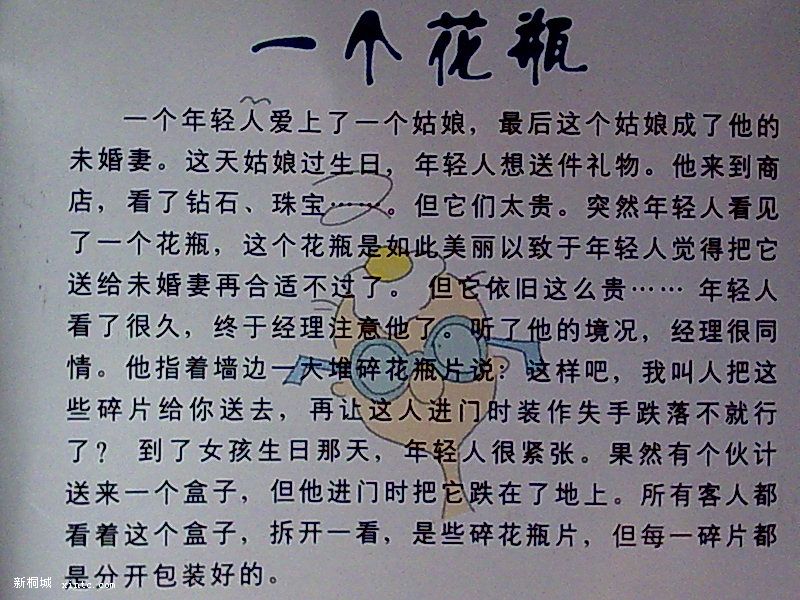 一个花瓶
一个年轻人爱上了一个姑娘，最后这个姑娘成了他的
未婚妻。这天姑娘过生日，年轻人想送件礼物。他来到商
店，看了钻石、珠宝……。但它们太贵。突然年轻人看见
了一个花瓶，这个花瓶是如此美丽以致于年轻人觉得把它
送给未婚妻再合适不过了。但它依旧这么贵……年轻人
看了很久，终于经理注意他了，听了他的境况，经理很同
情。他指着墙边一大堆碎花瓶片说：这样吧，我叫人把这
些碎片给你送去，再让这人进门时装作失手跌落不就行
了？ 到了女孩生日那天，年轻人很紧张。果然有个伙计
送来一个盒子，但他进门时把它跌在了地上。所有客人都
看着这个盒子，拆开一看，是些碎花瓶片，但每一碎片都
是分开包装好的。
新桐城 xintc.com